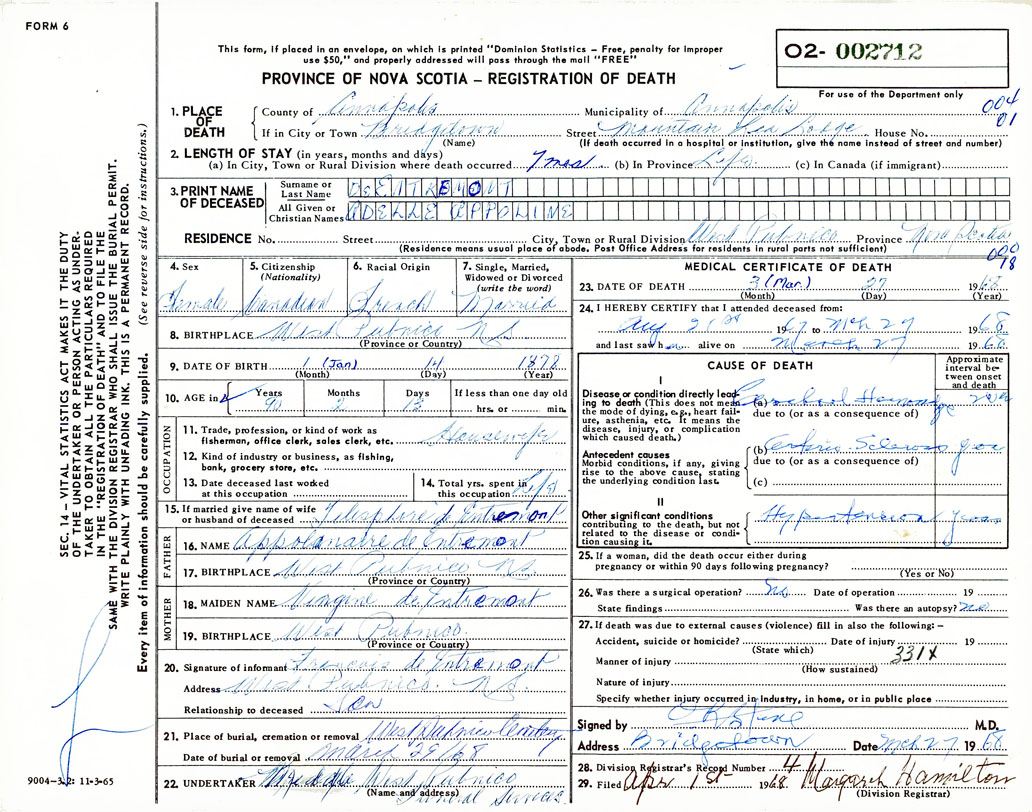 FORM 6
This form, if placed in an envelope, on which is printed "Dominion Statistics – Free, penalty for improper
use $50," and properly addressed will pass through the mail "FREE"
O2- 002712
PROVINCE OF NOVA SCOTIA – REGISTRATION OF DEATH
For use of the Department only
004
01
1. PLACE OF DEATH
County of Annapolis Municipality of Annapolis
If in City or Town Bridgetown Street Mountain Lea Lodge House No.
(Name) (If death occurred in a hospital or institution, give the name instead of street and number)
2. LENGTH OF STAY (in years, months and days)
(a) In City, Town or Rural Division where death occurred 7 mos (b) In Province Life (c) In Canada (if immigrant)
3. PRINT NAME OF DECEASED
Surname or Last Name D'ENTREMONT
All Given or Christian Names ADELLE APPOLINE
RESIDENCE No. Street City, Town or Rural Division West Pubnico Province Nova Scotia
(Residence means usual place of abode. Post Office Address for residents in rural parts not sufficient)
18
4. Sex Female
5. Citizenship (Nationality) Canadian
6. Racial Origin French
7. Single, Married, Widowed or Divorced (write the word) Married
8. BIRTHPLACE West Pubnico N.S.
(Province or Country)
9. DATE OF BIRTH 1 (Jan) 14 1878
(Month) (Day) (Year)
10. AGE in
Years 90 Months 2 Days 13 If less than one day old
hrs. or min.
OCCUPATION
11. Trade, profession, or kind of work as
fisherman, office clerk, sales clerk, etc. Housewife
12. Kind of industry or business, as fishing,
bank, grocery store, etc.
13. Date deceased last worked
at this occupation
14. Total yrs. spent in
this occupation Life
15. If married give name of wife
or husband of deceased Telesphore d'Entremont
FATHER
16. NAME Appolonaire de Entremont
17. BIRTHPLACE West Pubnico N.S.
(Province or Country)
MOTHER
18. MAIDEN NAME de Entremont
19. BIRTHPLACE West Pubnico
(Province or Country)
20. Signature of informant Francois de Entremont
Address West Pubnico. N.S.
Relationship to deceased Son
21. Place of burial, cremation or removal West Pubnico Cemetery
Date of burial or removal March 29/68
22. UNDERTAKER West Pubnico
(Name and address) Funeral Services
MEDICAL CERTIFICATE OF DEATH
23. DATE OF DEATH 3 (Mar.) 27 1968
(Month) (Day) (Year)
24. I HEREBY CERTIFY that I attended deceased from:
Aug 21st 1967 to Mch 27 1968
and last saw h alive on March 27 1968.
CAUSE OF DEATH
Approximate interval between onset and death
I
Disease or condition directly leading to death (This does not mean the mode of dying, e.g., heart failure, asthenia, etc. It means the disease, injury, or complication which caused death.)
(a) Cerebral Hemorrhage
due to (or as a consequence of)
Antecedent causes
Morbid conditions, if any, giving rise to the above cause, stating the underlying condition last.
(b) Arterio Sclerosis years
due to (or as a consequence of)
(c)
II
Other significant conditions contributing to the death, but not related to the disease or condition causing it.
Hypertension years
25. If a woman, did the death occur either during
pregnancy or within 90 days following pregnancy?
(Yes or No)
26. Was there a surgical operation? No Date of operation 19
State findings Was there an autopsy? No
27. If death was due to external causes (violence) fill in also the following: –
Accident, suicide or homicide? Date of injury 19
(State which) 331X
Manner of injury
(How sustained)
Nature of injury
Specify whether injury occurred in Industry, in home, or in public place
Signed by M.D.
Address Bridgetown Date Mch 27 1968.
28. Division Registrar's Record Number 4
29. Filed Apr 1st 1968 Margaret Hamilton
(Division Registrar)
SEC. 14 – VITAL STATISTICS ACT MAKES IT THE DUTY
OF THE UNDERTAKER OR PERSON ACTING AS UNDER-
TAKER TO OBTAIN ALL THE PARTICULARS REQUIRED
IN THE "REGISTRATION OF DEATH" AND TO FILE THE
SAME WITH THE DIVISION REGISTRAR WHO SHALL ISSUE THE BURIAL PERMIT.
WRITE PLAINLY WITH UNFADING INK. THIS IS A PERMANENT RECORD.
Every item of information should be carefully supplied. (See reverse side for instructions.)
9004-3.2: 11-3-65